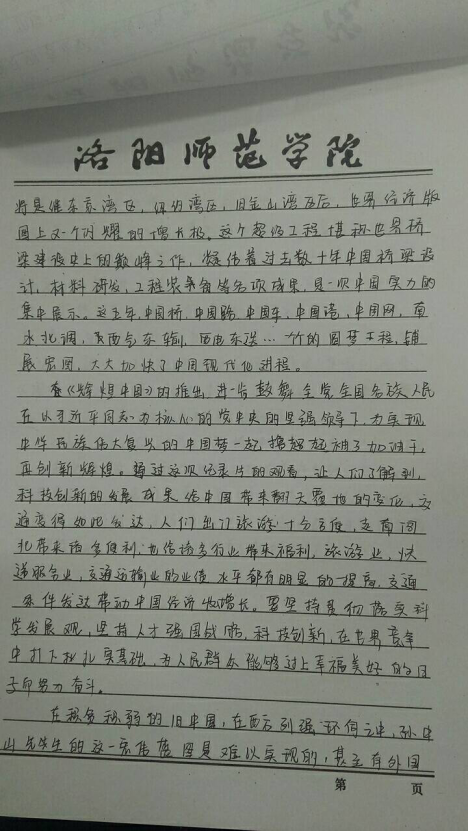 洛阳师范学院
将是继东京湾区,纽约湾区,旧金山湾区后,世界经济版
图上又一个闪耀的增长极。这个超级工程堪称世界桥
梁建设史上的巅峰之作,凝结着过去数十年中国桥梁设
计,材料研发,工程装备等各项成果,是一次中国实力的
集中展示。这五年,中国桥,中国路,中国车,中国港,中国网,南
水北调,西气东输,西电东送…一个个圆梦工程,铺
展宏图,大大加快了中国现代化进程。
看《辉煌中国》的推出,进一步鼓舞全党全国各族人民
在以习近平同志为核心的党中央的坚强领导下,为实现
中华民族伟大复兴的中国梦一起撸起袖子加油干,
再创新辉煌。通过这次纪录片的观看,让人们了解到,
科技创新的发展成果给中国带来翻天覆地的变化,交
通变得如此发达,人们出门旅游十分方便,走南闯
北带来诸多便利,也给诸多行业带来福利,旅游业,快
递服务业,交通运输业的业绩水平都有明显的提高,交通
条件发达带动中国经济收增长。要坚持贯彻落实科
学发展观,坚持人才强国战略,科技创新,在世界竞争
中打下扎扎实基础,为人民群众能够过上幸福美好的日
子而努力奋斗。
在积贫积弱的旧中国,在西方列强环伺之中,孙中
山先生的这一宏伟蓝图是难以实现的,甚至有外国
第 页